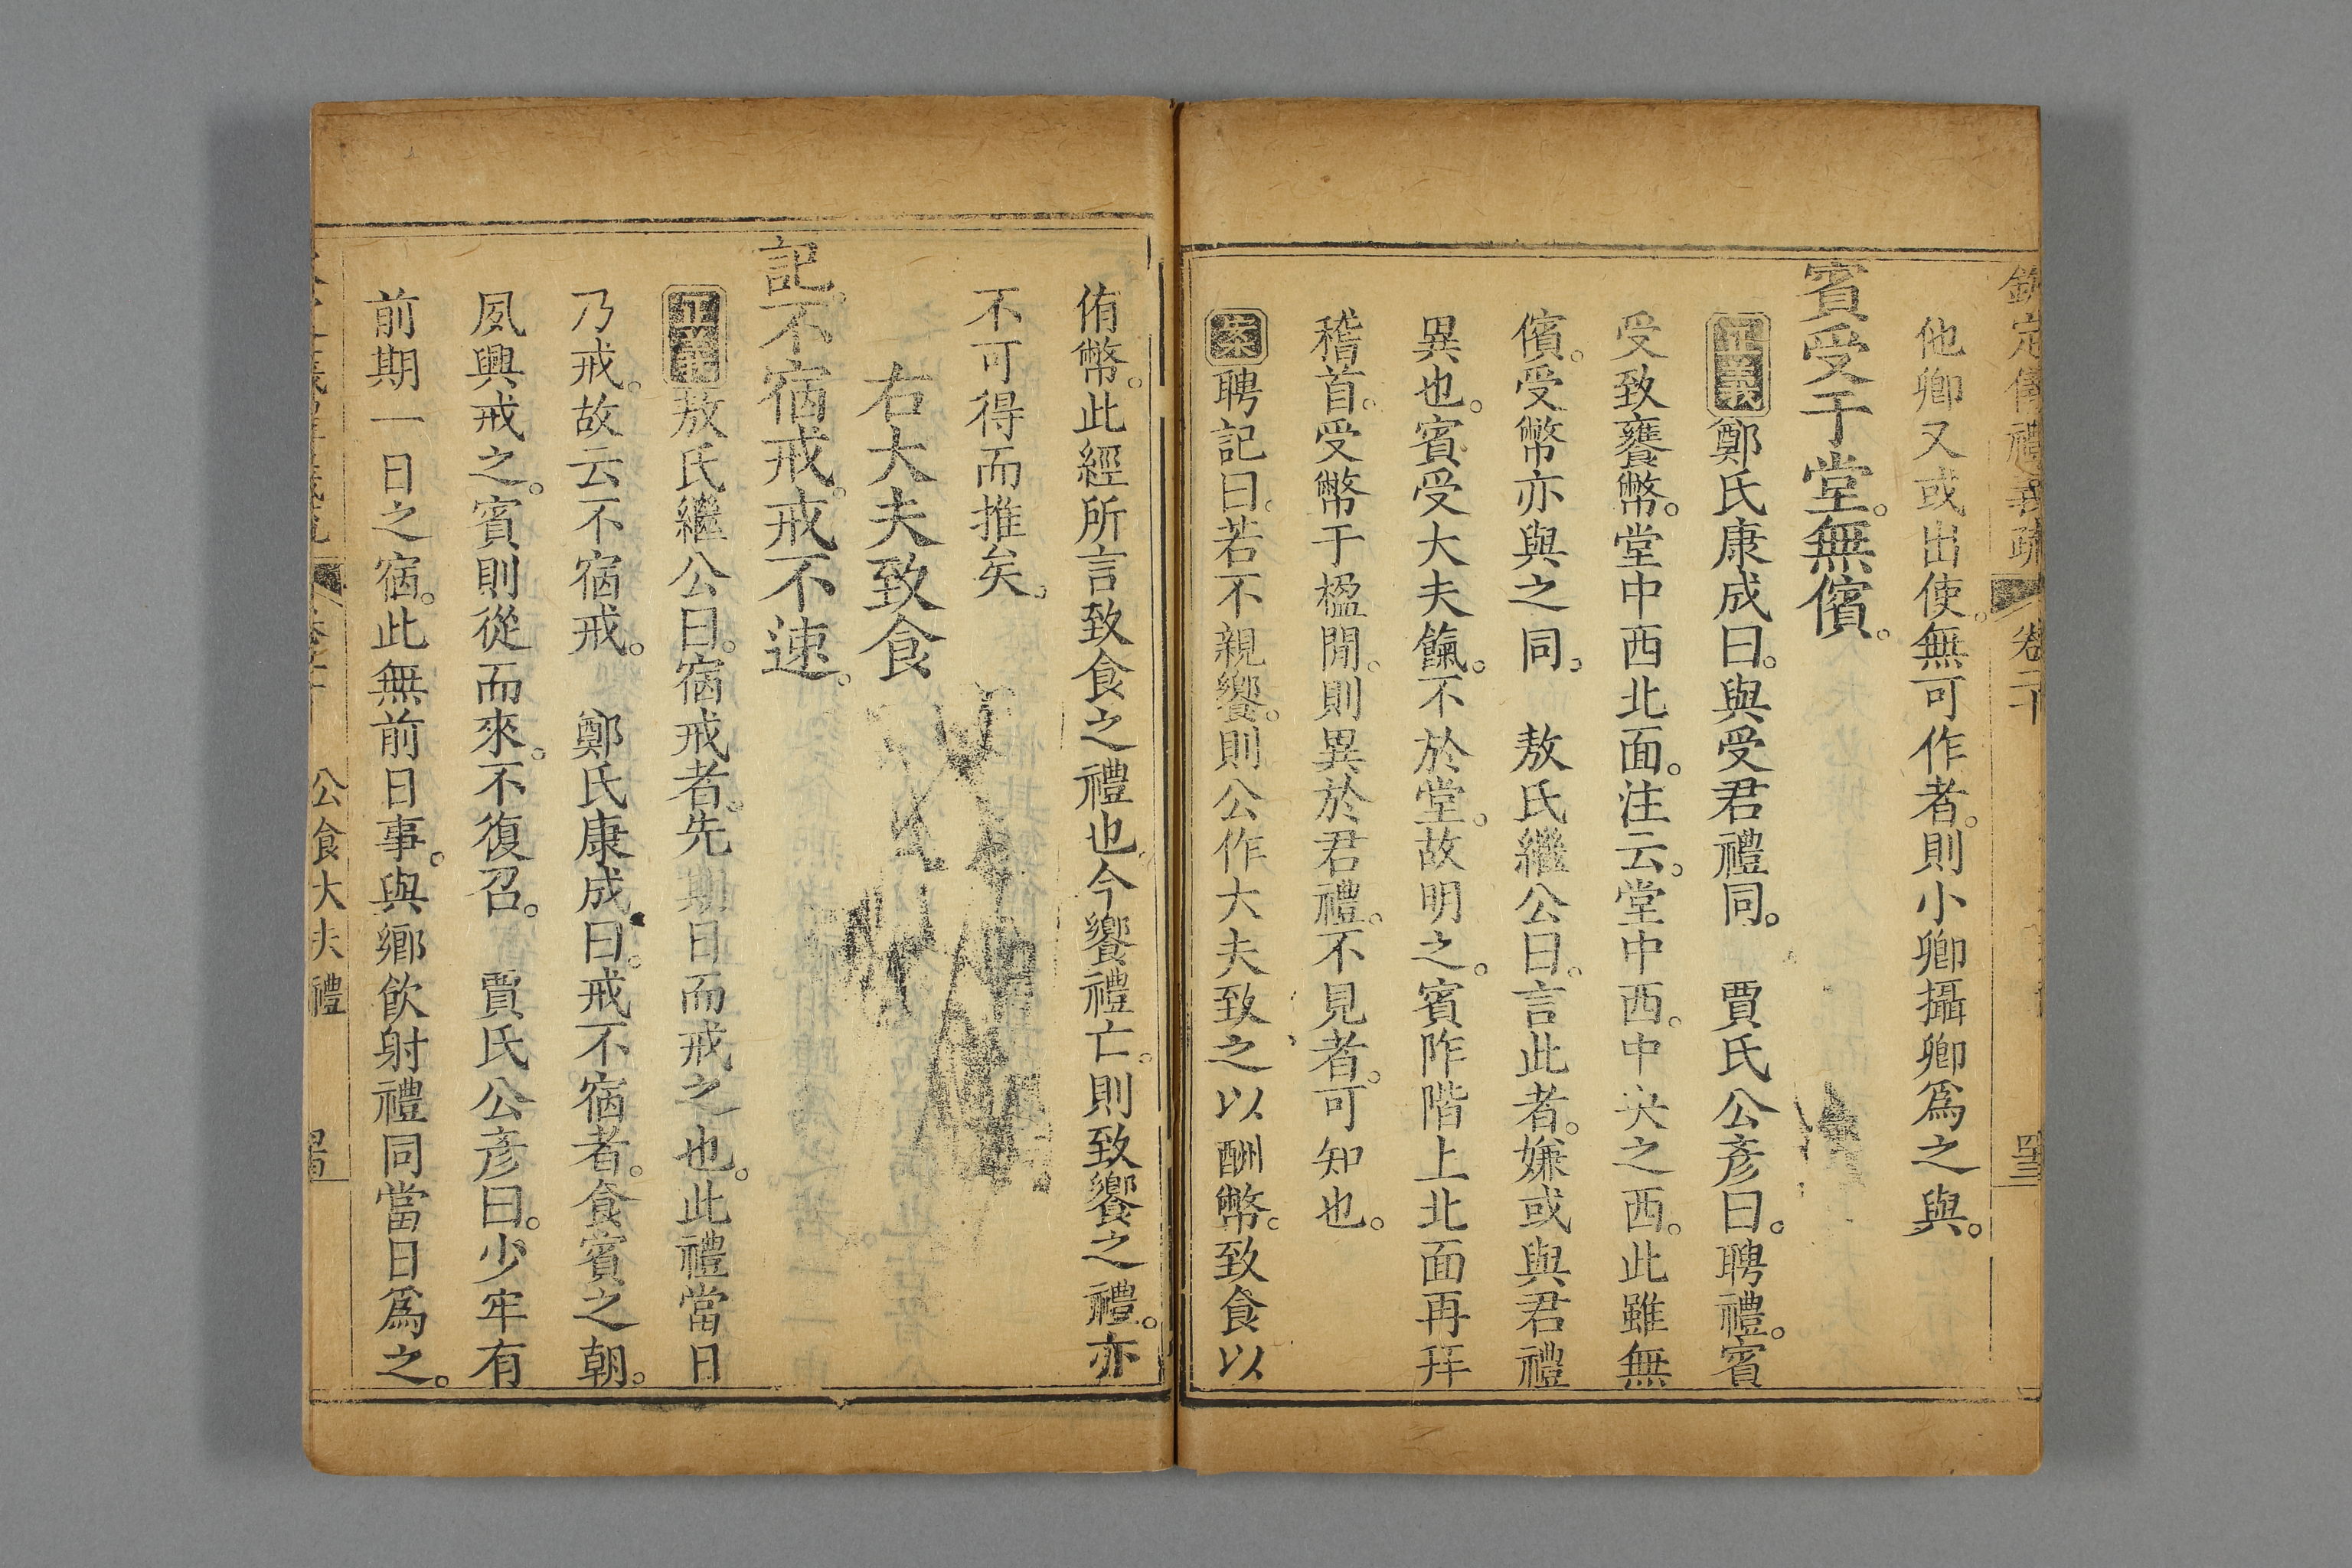 欽定儀禮義疏 卷二十 四三
他卿又或出使。無可作者。則小卿攝卿爲之與。
賓受于堂。無儐。
正義鄭氏康成曰。與受君禮同。 賈氏公彥曰。聘禮。賓
受致饔幣。堂中西北面。注云。堂中西。中央之西。此雖無
儐。受幣亦與之同。 敖氏繼公曰。言此者。嫌或與君禮
異也。賓受大夫餼。不於堂。故明之。賓阼階上北面再拜
稽首。受幣于楹閒。則異於君禮。不見者。可知也。
案聘記曰。若不親饗。則公作大夫致之以酬幣。致食以
侑幣。此經所言致食之禮也今饗禮亡。則致饗之禮。亦
不可得而推矣。
右大夫致食
記。不宿戒。戒不速。
正義敖氏繼公曰。宿戒者。先期日而戒之也。此禮當日
乃戒。故云不宿戒。 鄭氏康成曰。戒不宿者。食賓之朝。
夙興戒之。賓則從而來。不復召。 賈氏公彥曰。少牢有
前期一日之宿。此無前日事。與鄉飲射禮同當日爲之。
公食大夫禮